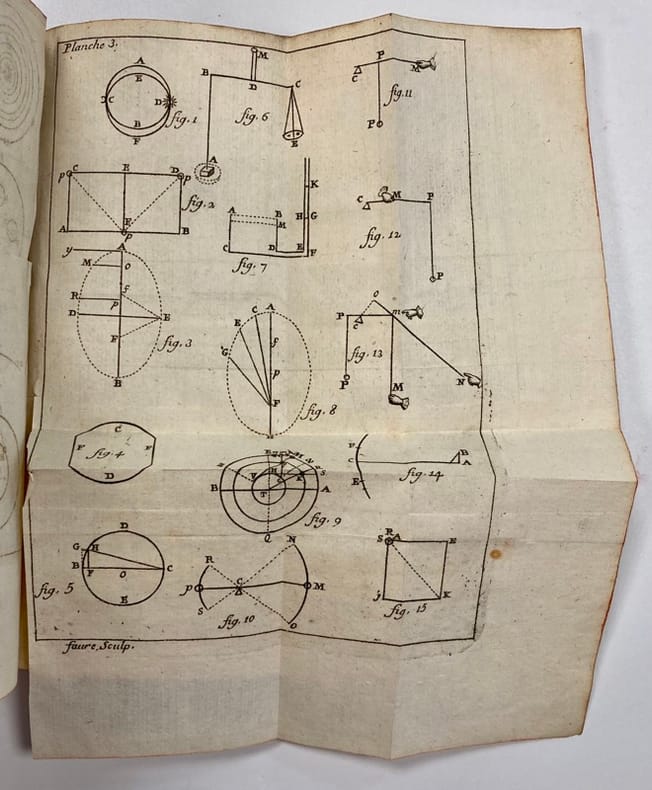 Planche 3.
A
E
C
D
B
F
fig. 1
M
B
D
C
fig. 6
E
A
P
C
M
fig. 11
P
p C
E
D p
fig. 2
E
A
p
B
K
A
B
H
G
M
C
D
E
F
fig. 7
C
M
P
fig. 12
P
y
A
M
o
R
f
P
D
E
F
fig. 3
B
C
A
E
G
f
p
F
fig. 8
O
P
m
C
fig. 13
P
M
N
C
F
fig. 4
F
D
B
T
A
Q
fig. 9
C
B
A
E
fig. 14
D
G
H
B
F
O
C
E
fig. 5
N
R
p
C
M
S
fig. 10
O
R
S
E
K
fig. 15
faure, Sculp.